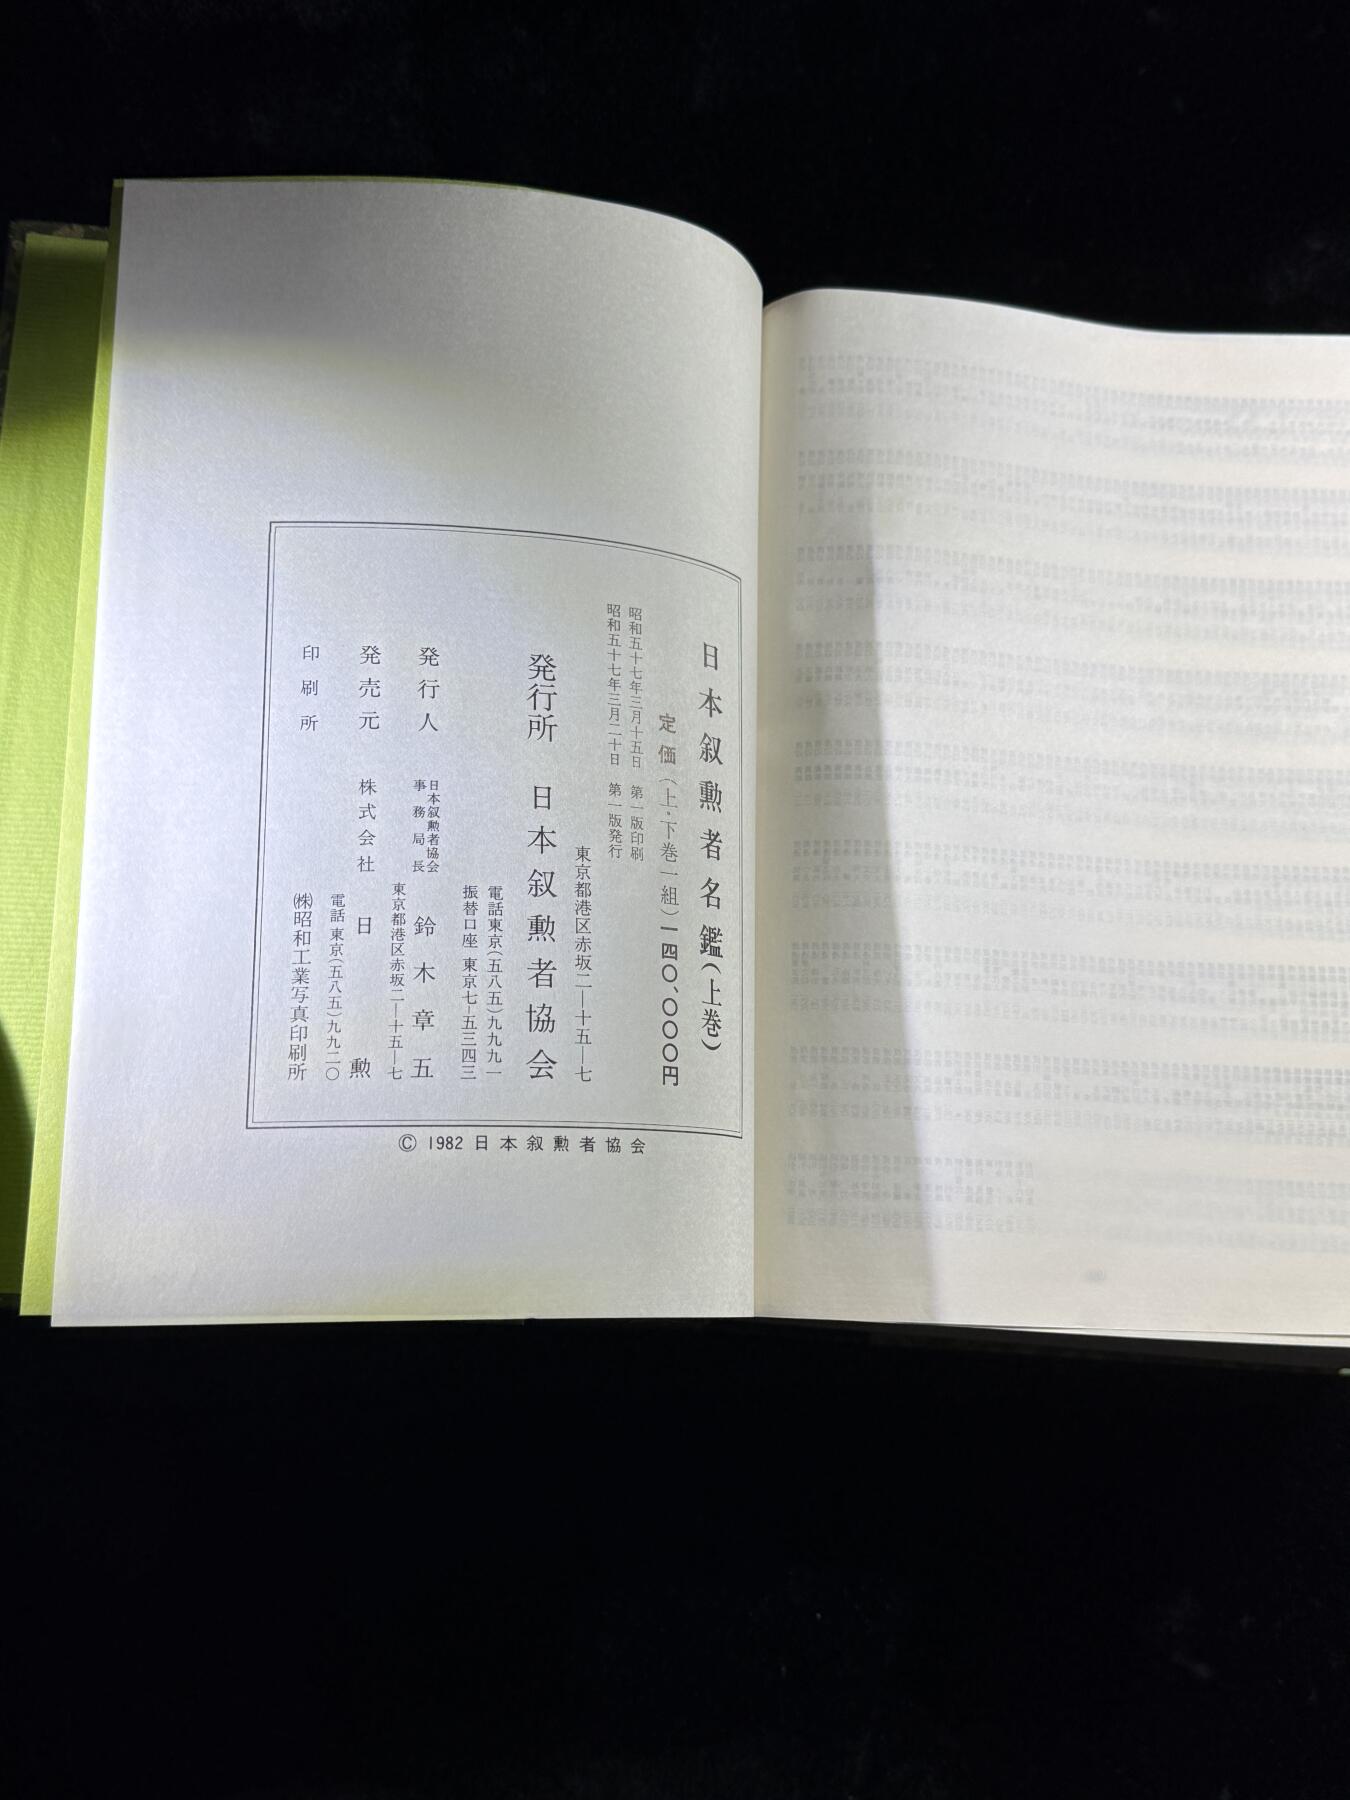 日本叙勲者名鑑(上巻)
定価(上・下巻一組)一四〇、〇〇〇円
昭和五十七年三月十五日 第一版印刷
昭和五十七年三月二十日 第一版発行
東京都港区赤坂二―十五―七
発行所 日本叙勲者協会
電話東京(五八五)九九九一
振替口座 東京七―五三四三
発行人 日本叙勲者協会事務局長 鈴木章五
東京都港区赤坂二―十五―七
発売元 株式会社 日勲
電話 東京(五八五)九九二〇
印刷所 ㈱昭和工業写真印刷所
© 1982 日本叙勲者協会